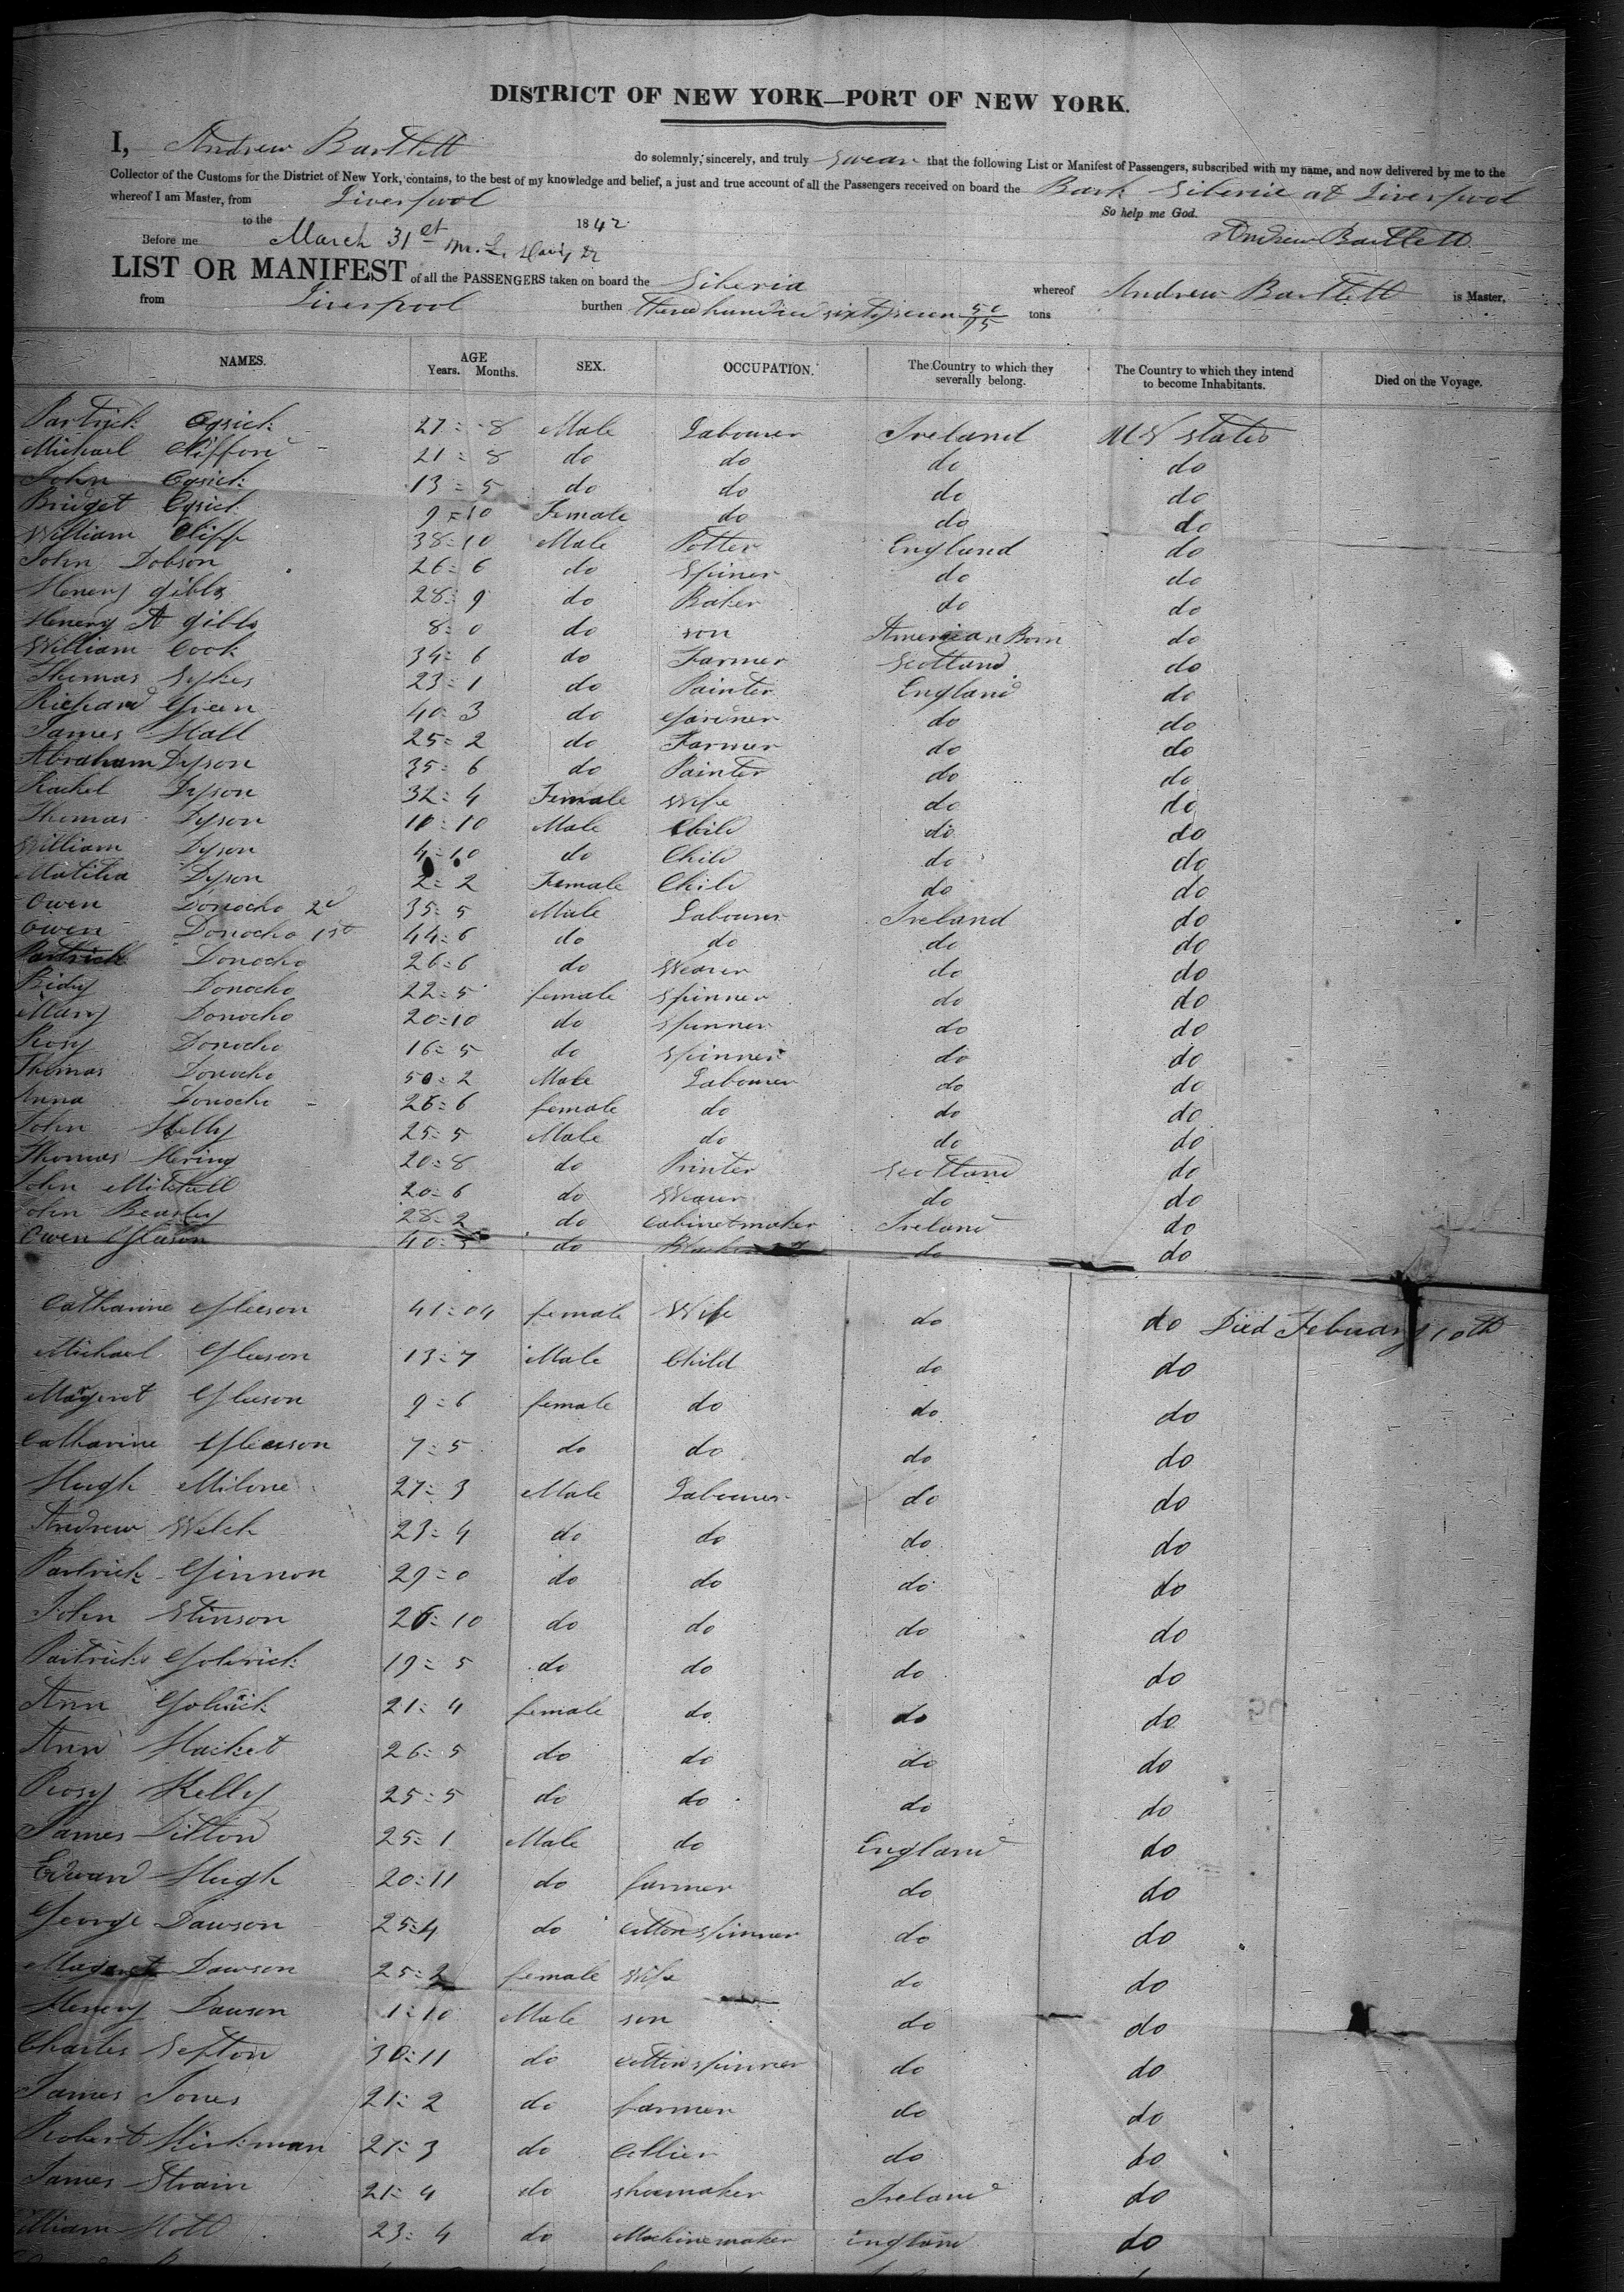 DISTRICT OF NEW YORK—PORT OF NEW YORK.
I, Andrew Bartlett do solemnly, sincerely, and truly swear that the following List or Manifest of Passengers, subscribed with my name, and now delivered by me to the
Collector of the Customs for the District of New York, contains, to the best of my knowledge and belief, a just and true account of all the Passengers received on board the Bark Siberia at Liverpool
whereof I am Master, from Liverpool
to the March 31st 1842 So help me God.
Before me Andrew Bartlett
LIST OR MANIFEST of all the PASSENGERS taken on board the Siberia whereof Andrew Bartlett is Master,
from Liverpool burthen three hundred sixty seven 50/95 tons
NAMES. AGE Years. Months. SEX. OCCUPATION. The Country to which they severally belong. The Country to which they intend to become Inhabitants. Died on the Voyage.
Partrick 27 = 8 Male Labourer Ireland states
Michael 21 = 8 do do do do
John 13 = 5 do do do do
Bridget 9 = 10 Female do do do
William Cliff 38 = 10 Male Potter England do
John Dobson 26 = 6 do Spiner do do
Henery gibbs 28 = 9 do Baker do do
Henery A gibbs 8 = 0 do son American Born do
William Cook 34 = 6 do Farmer Scotland do
Thomas Sykes 23 = 1 do Painter England do
Richard Green 40 = 3 do Gardner do do
James Hall 25 = 2 do Farmer do do
Abraham Dyson 35 = 6 do Painter do do
Rachel Dyson 32 = 4 Female Wife do do
Thomas Dyson 10 = 10 Male Child do do
William Dyson 4 = 10 do Child do do
Matilia Dyson 2 = 2 Female Child do do
Owen Donocho 2d 35 = 5 Male Labourer Ireland do
Owen Donocho 1st 44 = 6 do do do do
Partrick Donocho 26 = 6 do Weaver do do
Bidy Donocho 22 = 5 female spinner do do
Mary Donocho 20 = 10 do spinner do do
Rosy Donocho 16 = 5 do spinner do do
Thomas Donocho 50 = 2 Male Labourer do do
Anna Donocho 26 = 6 female do do do
John Kelly 25 = 5 Male do do do
Thomas Hering 20 = 8 do Printer Scotland do
John Mitchell 20 = 6 do Weaver do do
John Bearley 28 = 2 do Cabinetmaker Ireland do
Owen Gleeson 40 = 5 do do do
Catharine Gleeson 41 = 04 female Wife do do Died Febuary 10th
Michael Gleeson 13 = 7 Male Child do do
Margeret Gleeson 9 = 6 female do do do
Catharine Gleeson 7 = 5 do do do do
Hugh Milone 27 = 3 Male Labourer do do
Andrew Welch 23 = 4 do do do do
Partrick Ginnon 29 = 0 do do do do
John Stinson 26 = 10 do do do do
Partrick Golrick 19 = 5 do do do do
Ann Golrick 21 = 4 female do do do
Ann Hacket 26 = 5 do do do do
Rosy Kelly 25 = 5 do do do do
James Dilton 25 = 1 Male do England do
Edward Hugh 20 = 11 do farmer do do
George Dawson 25 = 4 do cotton spinner do do
Margaret Dawson 25 = 2 female Wife do do
Henery Dawson 1 = 10 Male son do do
Charles Sefton 30 = 11 do cotton spinner do do
James Jones 21 = 2 do farmer do do
Robert Kirkman 27 = 3 do Collier do do
James Strain 21 = 4 do shoemaker Ireland do
William Holl 23 = 4 do Machinemaker England do